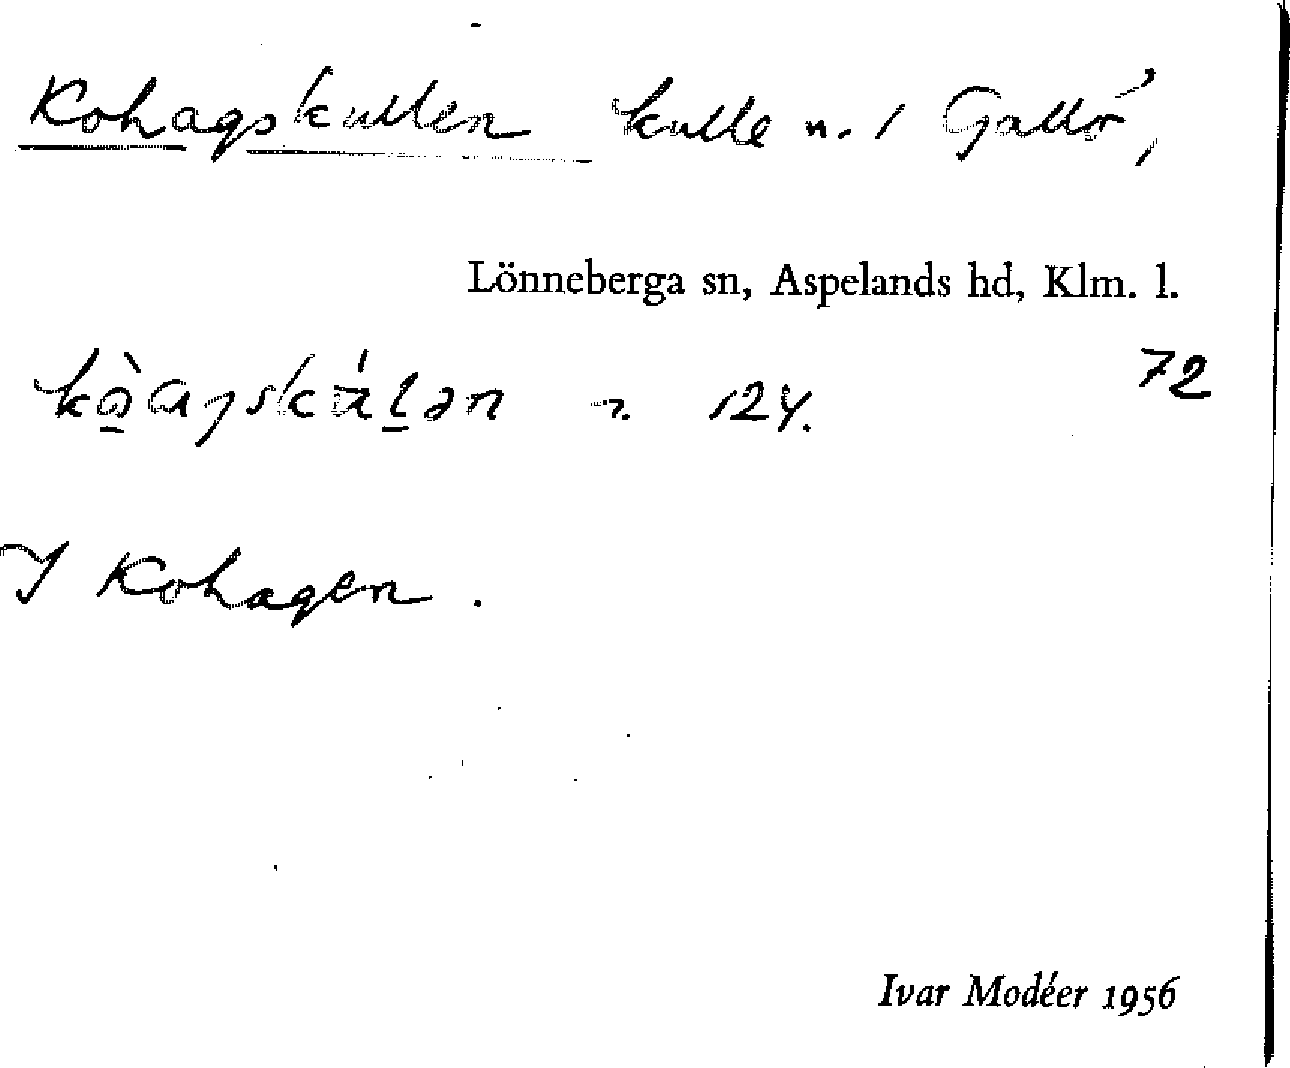 Kohagskullen kulle n. / Gallö,
Lönneberga sn, Aspelands hd, Klm. l.
72
124.
I Kohagen.
Ivar Modéer 1956